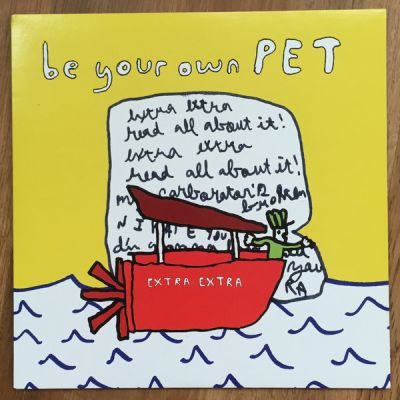 be your own PET
extra extra
read all about it!
extra extra
read all about it!
carborator's
broken
EXTRA EXTRA